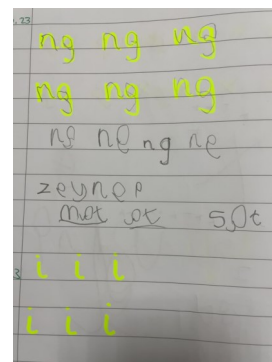 .23
ng ng ng
ng ng ng
ng ng ng ng
zeynep
mat at sat
i i i
3
i i i